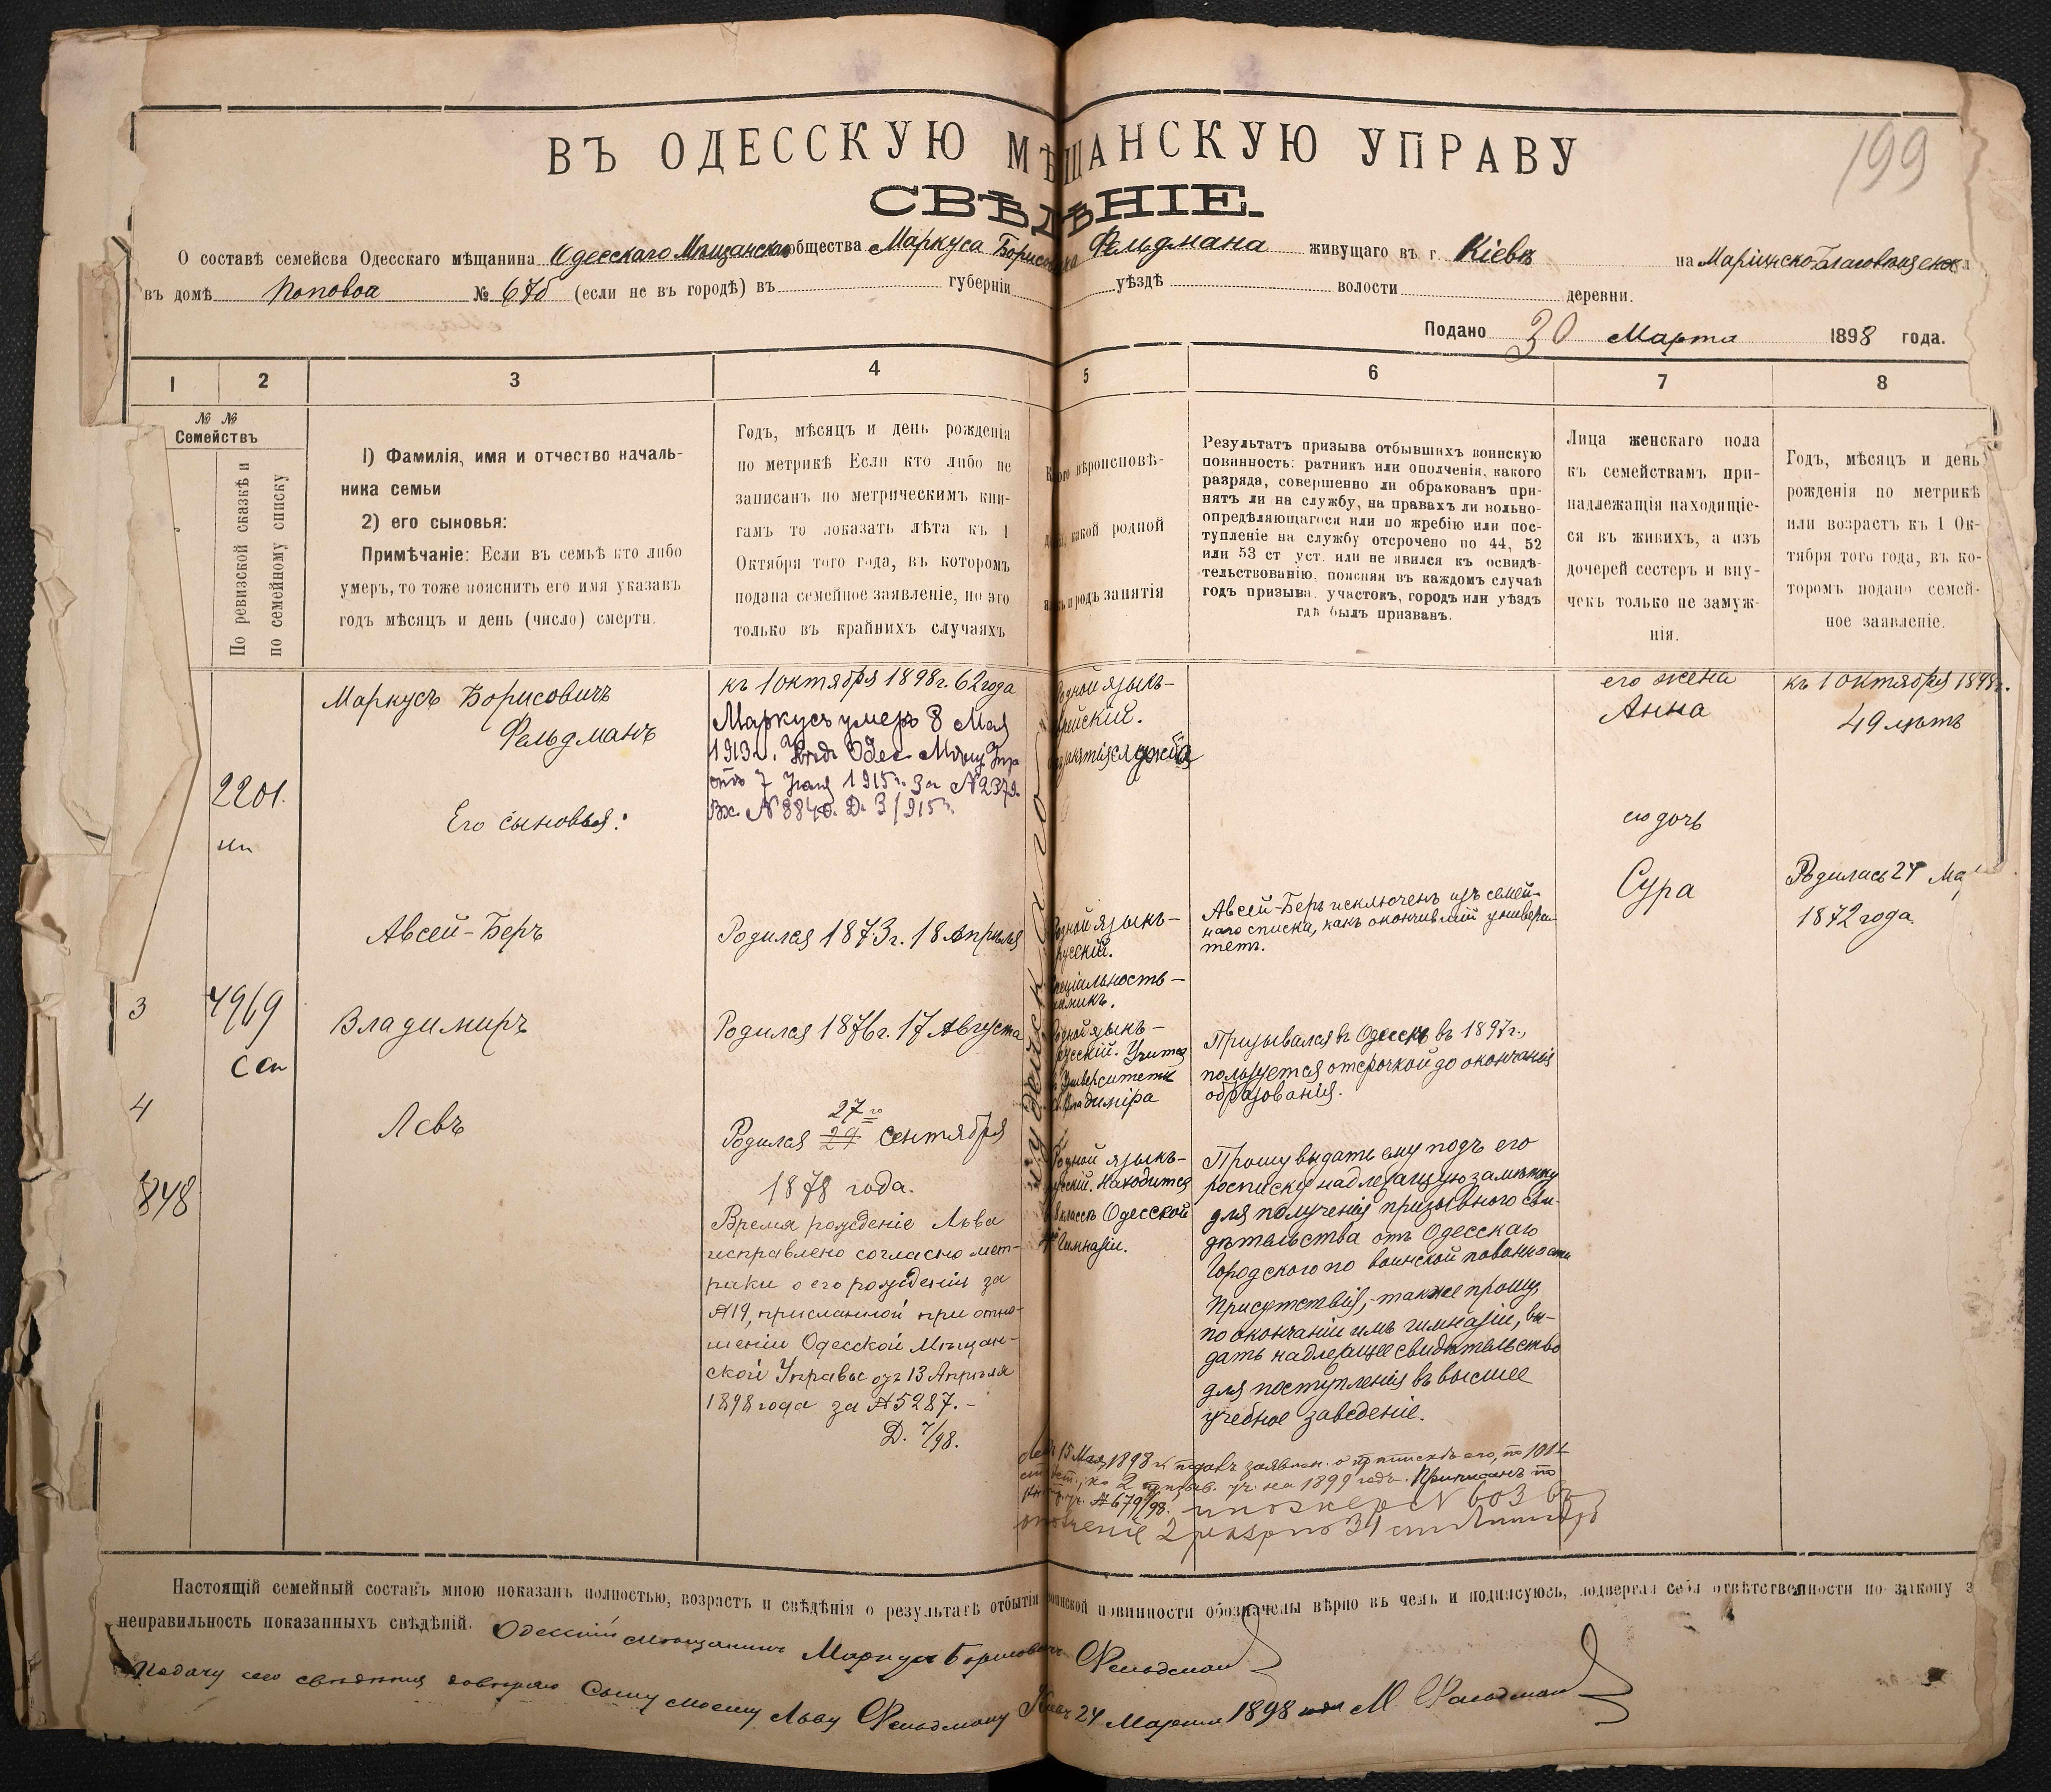 199
ВЪ ОДЕССКУЮ МѢЩАНСКУЮ УПРАВУ
СВѢДѢНІЕ.
О составѣ семейсва Одесскаго мѣщанина Одесскаго Мѣщанскаго общества Маркуса Борисовича Фельдмана живущаго въ г. Кіевѣ на Маріинско-Благовѣщенск
въ домѣ Попова № 67б (если не въ городѣ) въ губерніи уѣздѣ волости деревни.
Подано 30 Марта 1898 года.
1 2 3 4 5 6 7 8
№ №
Семействъ
По ревизской сказкѣ и
по семейному списку
1) Фамилія, имя и отчество началь-
ника семьи
2) его сыновья:
Примѣчаніе: Если въ семьѣ кто либо
умеръ, то тоже пояснить его имя указавъ
годъ мѣсяцъ и день (число) смерти.
Годъ, мѣсяцъ и день рожденія
по метрикѣ Если кто либо не
записанъ по метрическимъ кни-
гамъ то показать лѣта къ 1
Октября того года, въ которомъ
подана семейное заявленіе, но это
только въ крайнихъ случаяхъ
вѣроисповѣ-
какой родной
родъ занятія
Результатъ призыва отбывшихъ воинскую
повинность: ратникъ или ополченія, какого
разряда, совершенно ли обракованъ при-
нятъ ли на службу, на правахъ ли вольно-
опредѣляющагося или по жребію или пос-
тупленіе на службу отсрочено по 44, 52
или 53 ст уст. или не явился къ освидѣ-
тельствованію, поясняя въ каждомъ случаѣ
годъ призыва, участокъ, городъ или уѣздъ
гдѣ былъ призванъ.
Лица женскаго пола
къ семействамъ при-
надлежащія находящіе-
ся въ живихъ, а изъ
дочерей сестеръ и вну-
чекъ только не замуж-
нія.
Годъ, мѣсяцъ и день
рожденія по метрикѣ
или возрастъ къ 1 Ок-
тября того года, въ ко-
торомъ подано семей-
ное заявленіе.
2201.
4969
3
4
848
Маркусъ Борисовичъ
Фельдманъ
Его сыновья:
Авсей-Беръ
Владимиръ
Левъ
къ 1 октября 1898 г. 62 года
Маркусъ умеръ 8 Мая
1913 г.
1915 г. за №2379
Вх. №8840. Д. 3/915 г.
Родился 1873 г. 18 Апрѣля
Родился 1876 г. 17 Августа
27го
Родился 29 сентября
1878 года.
Время рожденіе Льва
исправлено согласно мет-
рики о его рожденіи за
№19, присланной при отно-
шеніи Одесской Мѣщан-
ской Управы отъ 13 Апрѣля
1898 года за №5287.-
Д. 7/98.
Родной языкъ-
Родной языкъ-
русскій.
Спеціальность-
Родной языкъ-
русскій. Учится
Университетѣ
Св. Владиміра
Родной языкъ-
русскій. Находится
классѣ Одесской
Гимназіи.
Авсей-Беръ исключенъ изъ семей-
наго списка, какъ окончившій универси-
тетъ.
Призывался въ Одессѣ въ 1897 г.,
пользуется отсрочкой до окончанія
образованія.
Прошу выдать ему подъ его
росписку надлежащую замѣтку
для полученія призывного сви-
дѣтельства отъ Одесскаго
Городского по воинской повинности
Присутствія, также прошу,
по окончаніи имъ гимназіи, вы-
дать надлежащее свидѣтельство
для поступленія въ высшее
учебное заведеніе.
15 Мая 1898 г. подавъ заявлен. о припискѣ его, по
2 призыв. уч. на 1899 годъ. Приписанъ по
№679/98. по жер № 603 въ
ополченіе 2 разр по
его жена
Анна
его дочь
Сура
къ 1 октября 1898 г.
49 лѣтъ
Родилась 24
1872 года.
Настоящій семейный составъ мною показанъ полностью, возрастъ и свѣдѣнія о результатѣ отбытія воинской повинности обозначены вѣрно въ чемъ и подписуюсь, подвергая себя отвѣтственности по закону з
неправильность показанныхъ свѣдѣній. Одесскій мѣщанинъ Маркусъ Борисовичъ Фельдман
Подачу сего свѣдѣнія довѣряю Сыну моему Льву Фельдману Кіевъ 24 Марта 1898 М. Фельдман